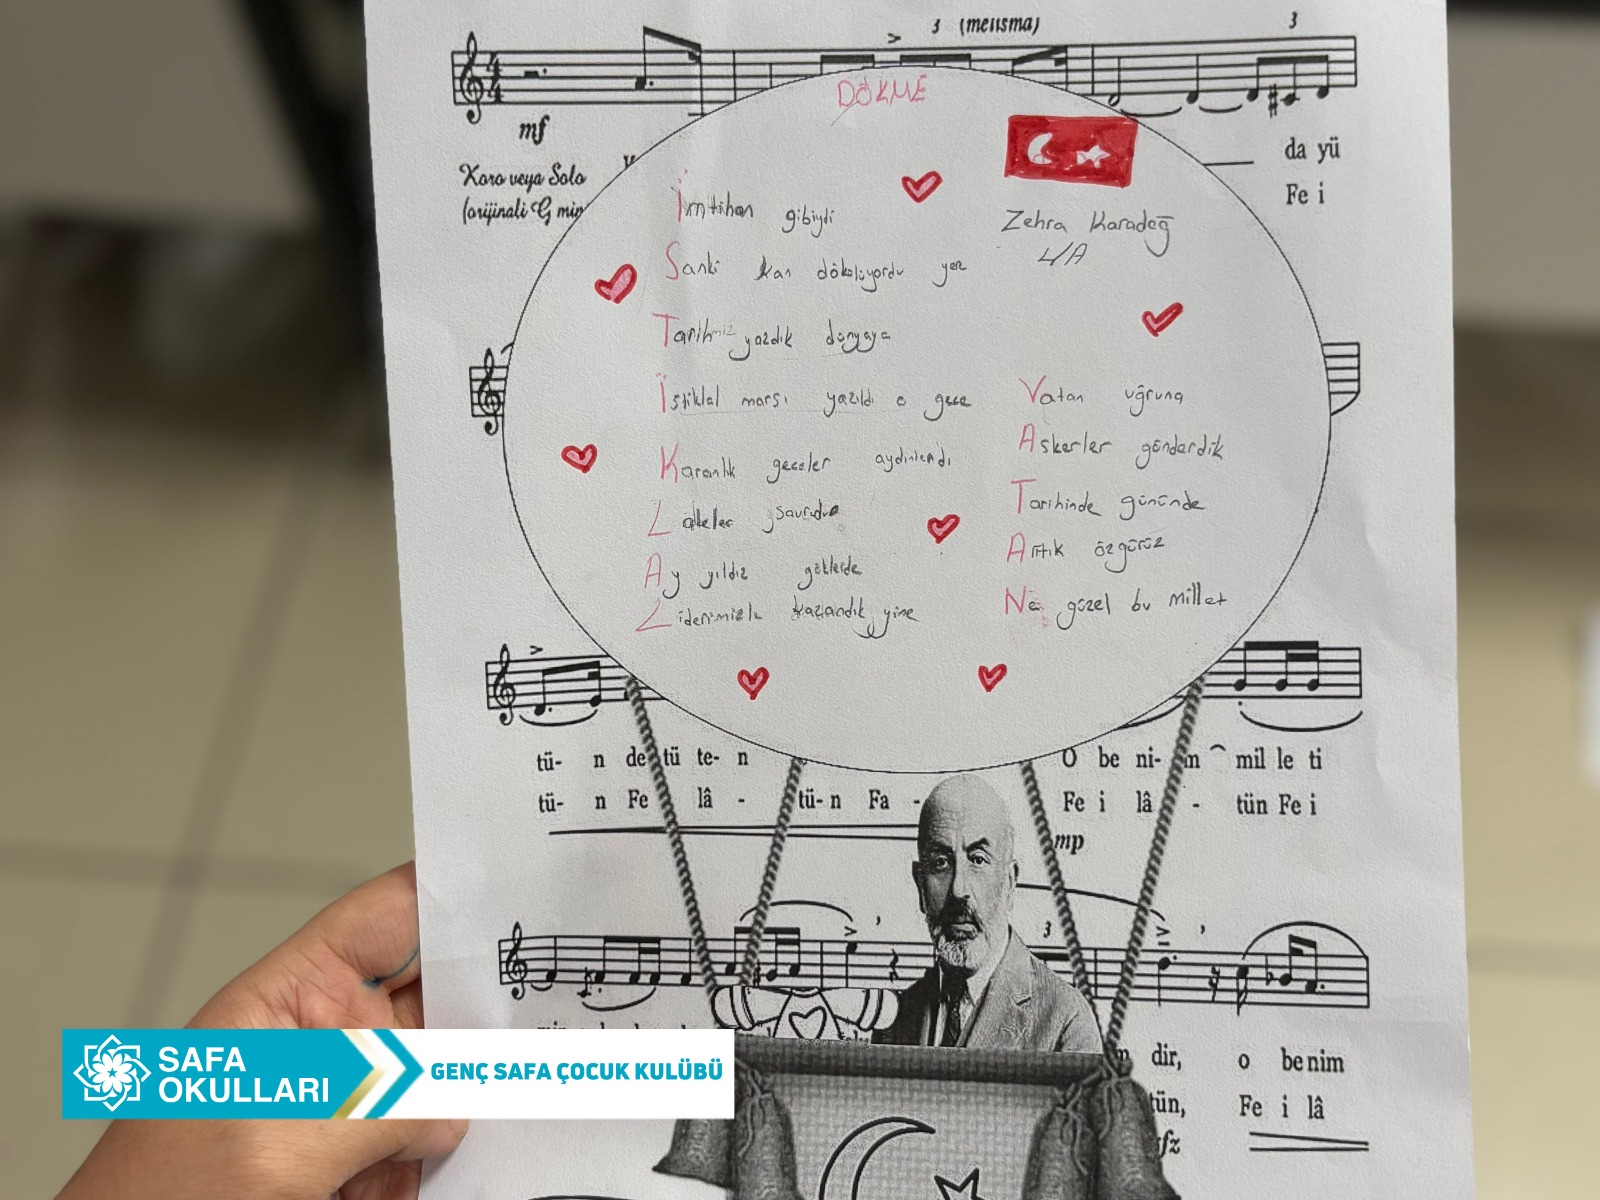 3 (melisma)
3
mf
Koro veya Solo
(orijinali G min
da yü
Fe i
DÖKME
Zehra Karadağ
4/A
İmtihan gibiydi
Sanki kan dökülüyordu yer
Tarihmiz yazdık dünyaya
İstiklal marşı yazıldı o gece
Karanlık geceler aydınlandı
Laleler savruldu
Ay yıldız göklerde
Liderimizle kazandık yine
Vatan uğruna
Askerler gönderdik
Tarihinde gününde
Artık özgürüz
Ne güzel bu millet
tü- n de tü te- n
O be ni- m mil le ti
tü- n Fe lâ - tü- n Fa -
Fe i lâ - tün Fe i
mp
3
dir, o benim
tün, Fe i lâ
sfz
SAFA OKULLARI
GENÇ SAFA ÇOCUK KULÜBÜ